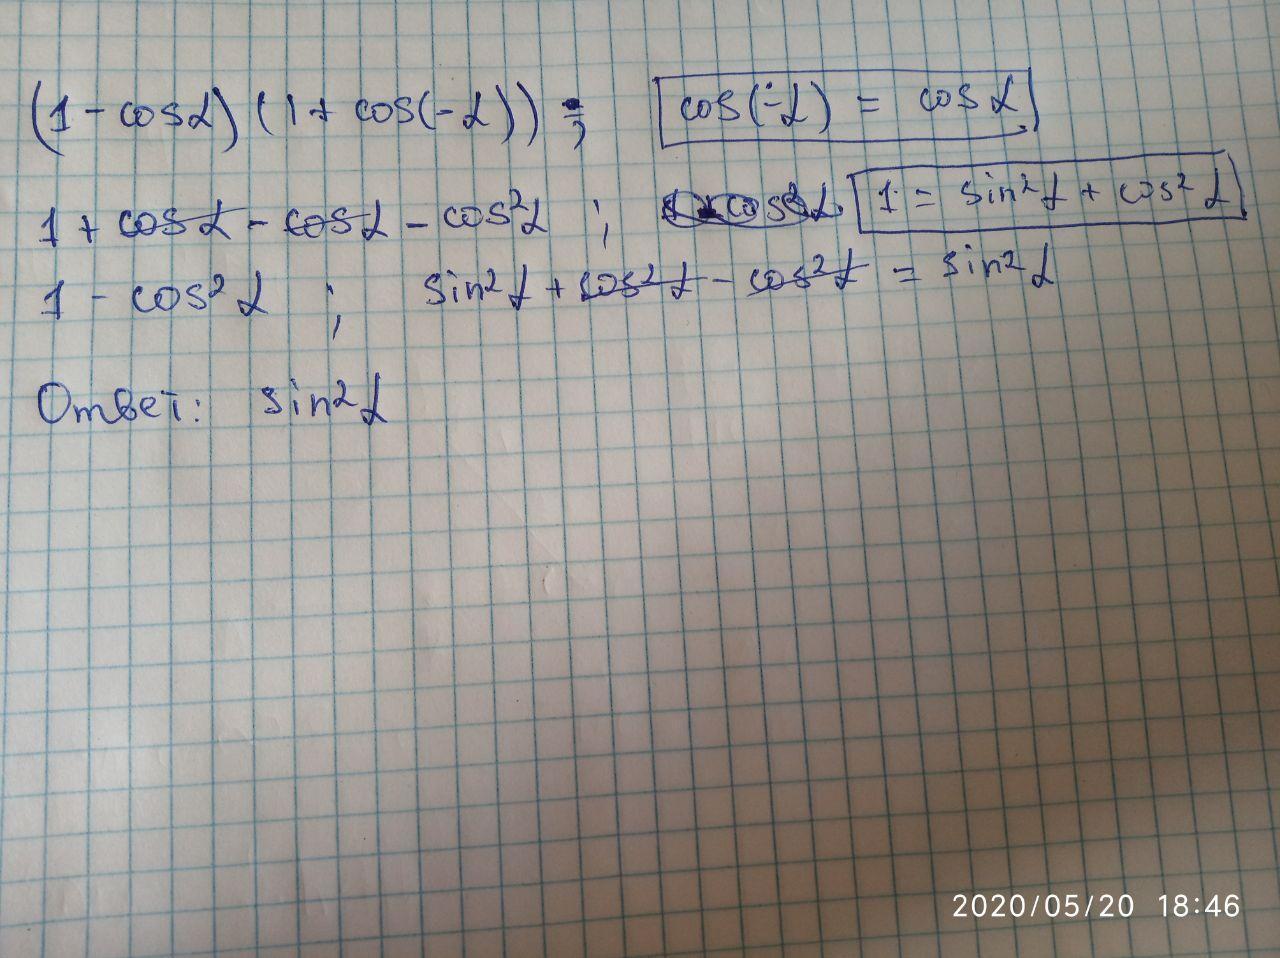 (1 - cosα)(1 + cos(-α)) ; cos(-α) = cosα
1 + cosα - cosα - cos²α ; 1 = sin²α + cos²α
1 - cos²α ; sin²α + cos²α - cos²α = sin²α
Ответ: sin²α
2020/05/20 18:46